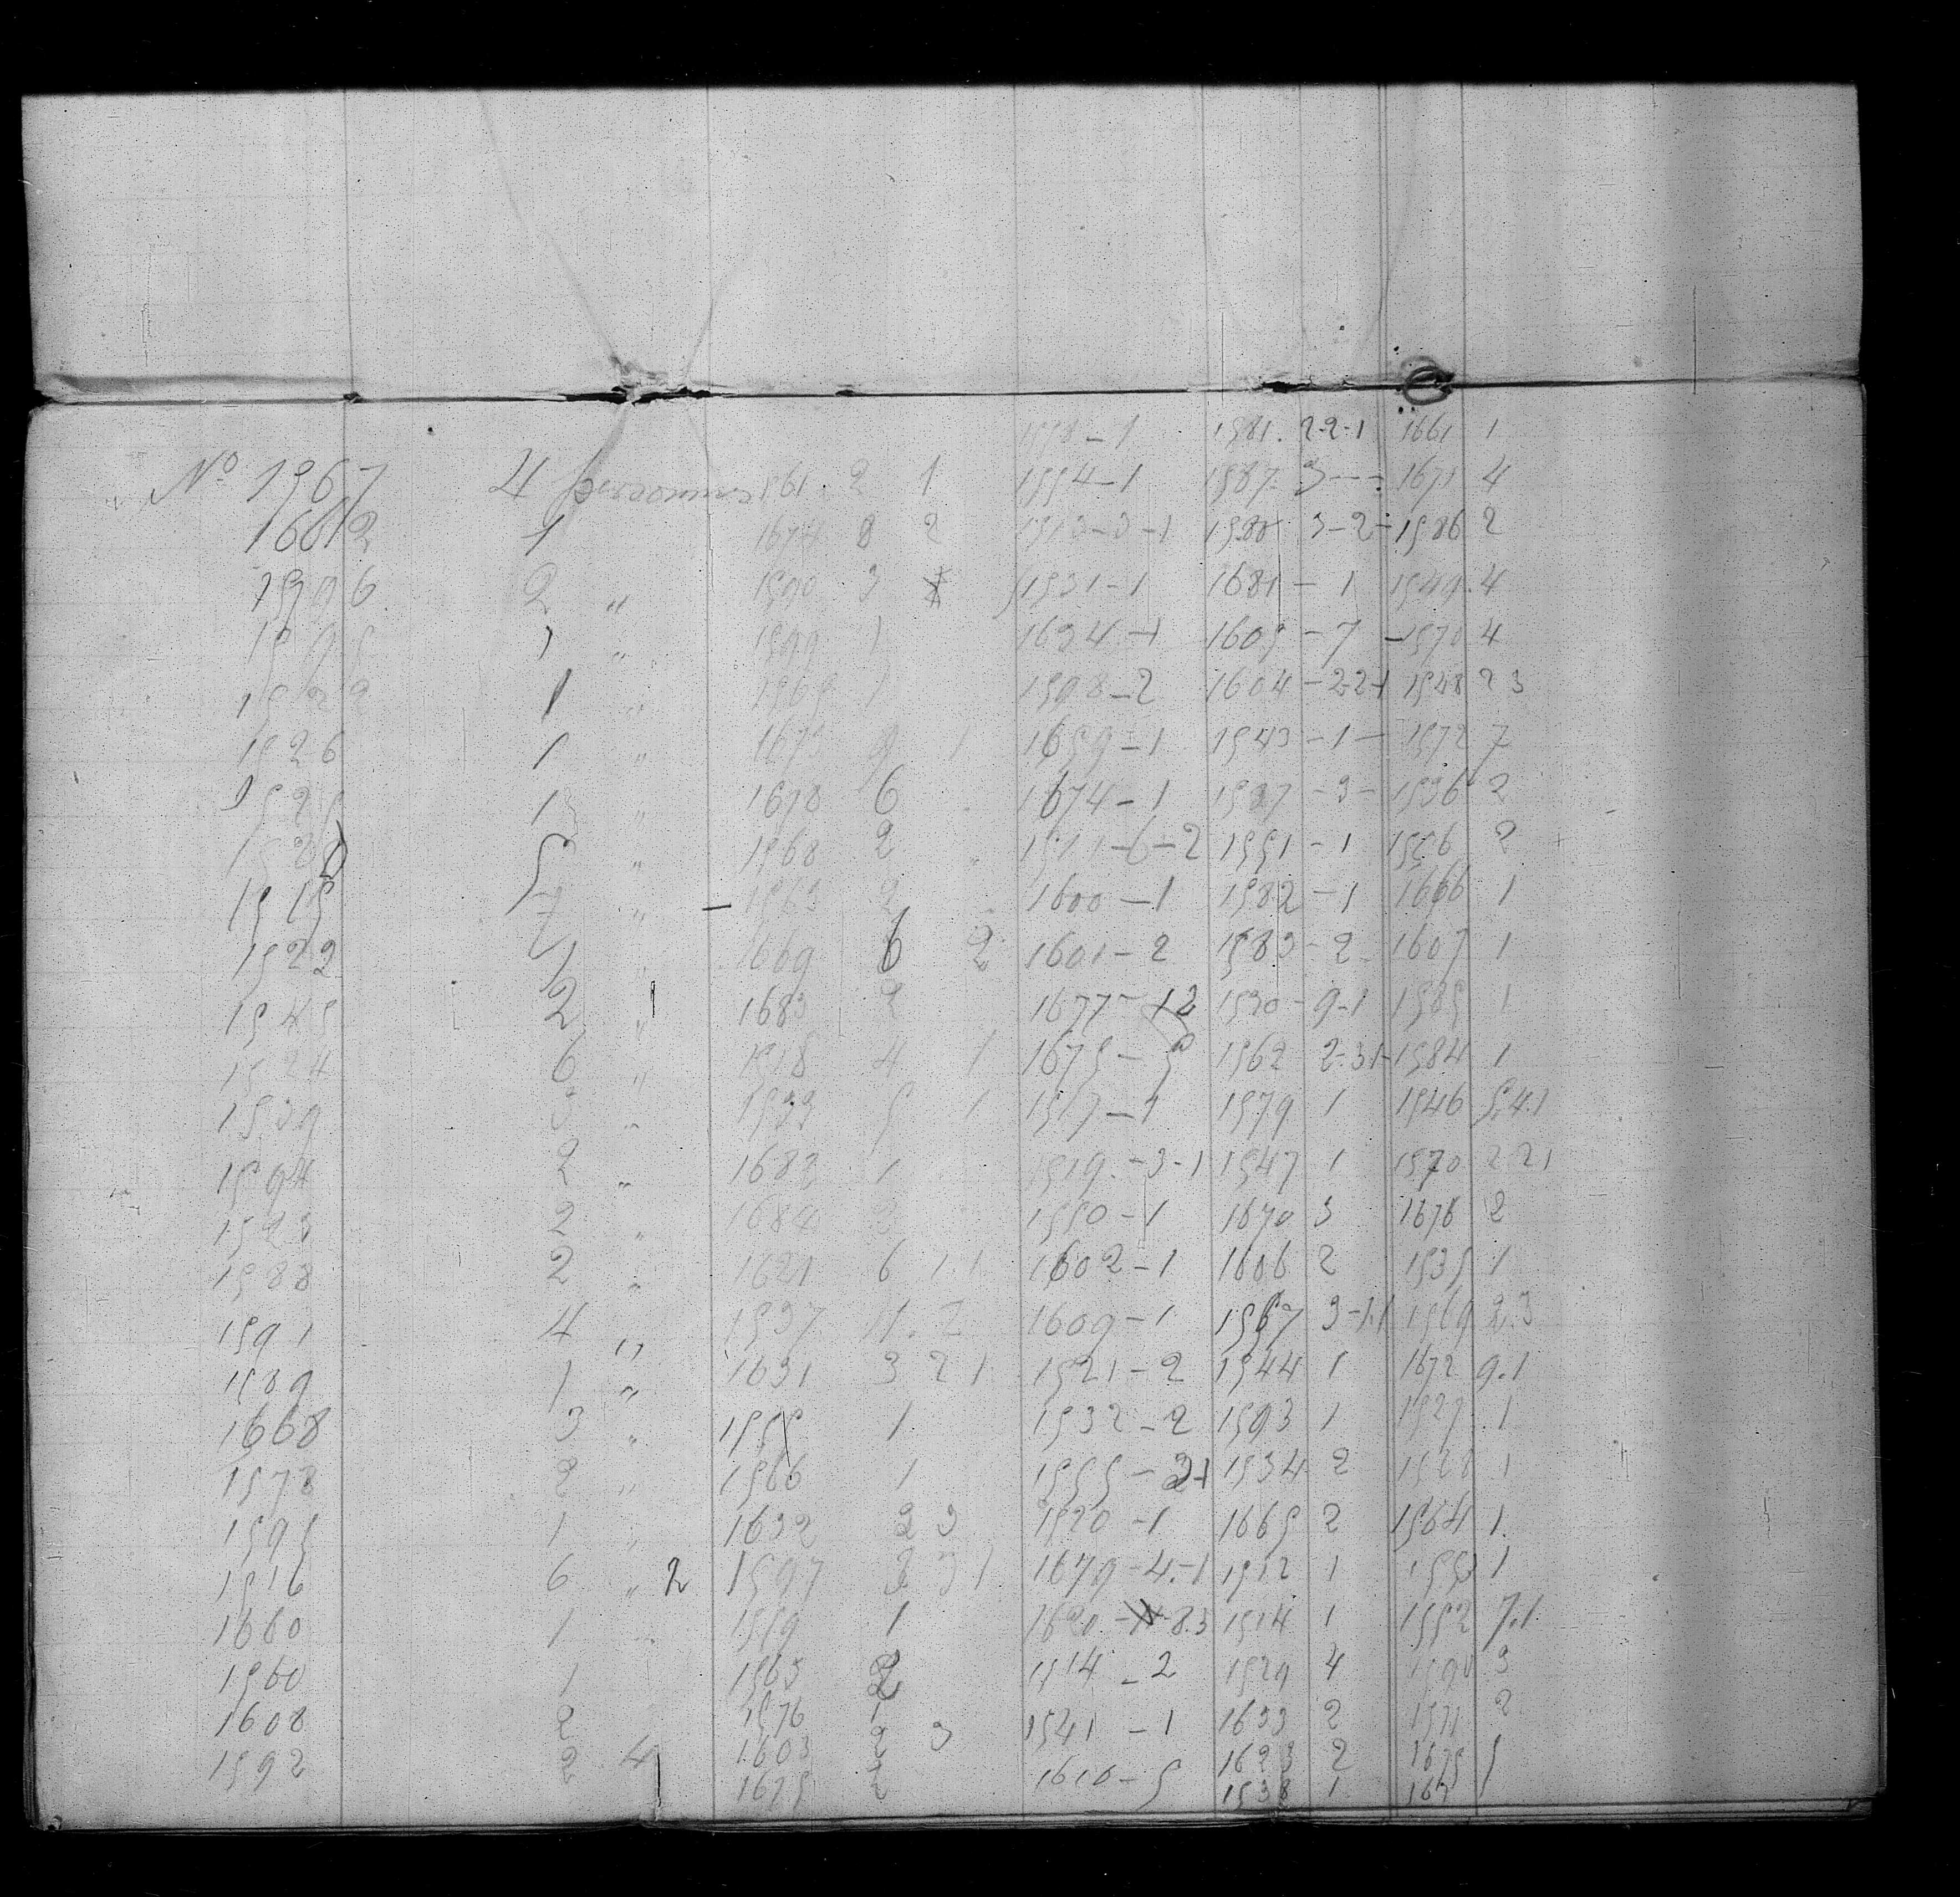 1558-1 1581. 2-2-1 1661 1
No 1567 4 personnes 1561 2 1 1554-1 1587 3-- 1671 4
1662 1 1674 8 2 1513-3-1 1588 3-2- 1586 2
1596 2 " 1590 3 1531-1 1681-1 1549.4
1595 1 " 1599 1 1634-1 1605-7 -1570 4
1 " 1 1598-2 1604-2-2-1 1548 2 3
1526 1 " 1673 9 1 1659-1 1543-1- 1572 7
1525 1 " 1678 6 1674-1 1537-3- 1536 2
5 " 1568 2 1511-6-2 1551-1 1556 2
1515 7 " - 1563 2 1600-1 1582-1 1666 1
1522 1 " 1669 6 2 1601-2 1583-2- 1607 1
1545 2 " 1683 2 1677- 1530-9-1 1585 1
1524 6 " 1518 4 1 1675-5 1562 2-3-1- 1584 1
1539 3 " 1533 5 1 1517-1 1579 1 1546 5.4.1
1594 2 " 1682 1 1519.-3-1 1547 1 1570 2 2 1
1523 2 " 1684 2 1550-1 1670 3 1676 2
1588 2 " 1621 6 1.1 1602-1 1606 2 1535 1
1591 4 " 1537 11.2 1609-1 1567 3-1.1 1569 2.3
1589 1 " 1631 3 2 1 1521-2 1544 1 1672 9.1
1668 3 " 1 1532-2 1593 1 1527 1
1578 2 " 1566 1 1555-2-1 1534 2 1528 1
1595 1 " 1632 2 3 1520-1 1665 2 1564 1.
1516 6 " 2 1597 3 3 1 1679-4-1 1512 1 1553 1
1660 1 1559 1 1620- 8.3 1514 1 1552 7.1
1560 1 1565 2 1514-2 1529 4 3
1608 2 1576 1 1541-1 1633 2 1571 2
1592 2 4 1603 2 3 1610-5 1623 2 1675
1675 2 1538 1